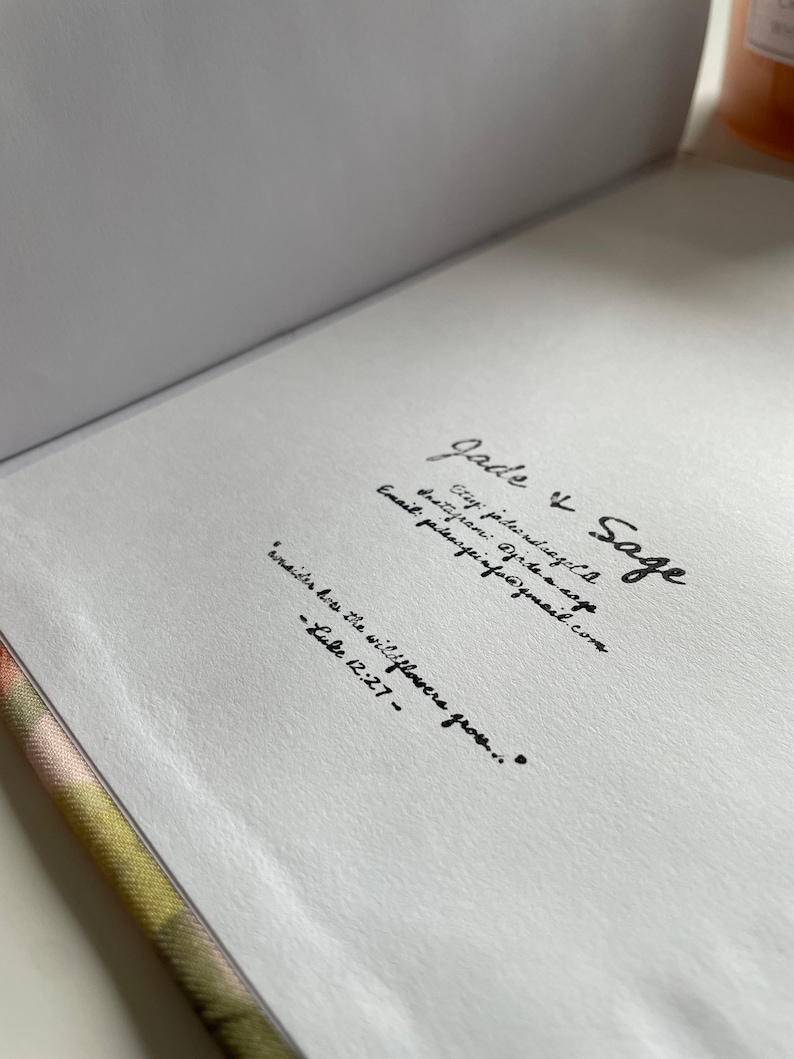 Jade & Sage
Etsy: jadeandsageCo
Instagram: @jade.n.sage
Email: jadensageinfo@gmail.com
"consider how the wildflowers grow..."
-Luke 12:27-